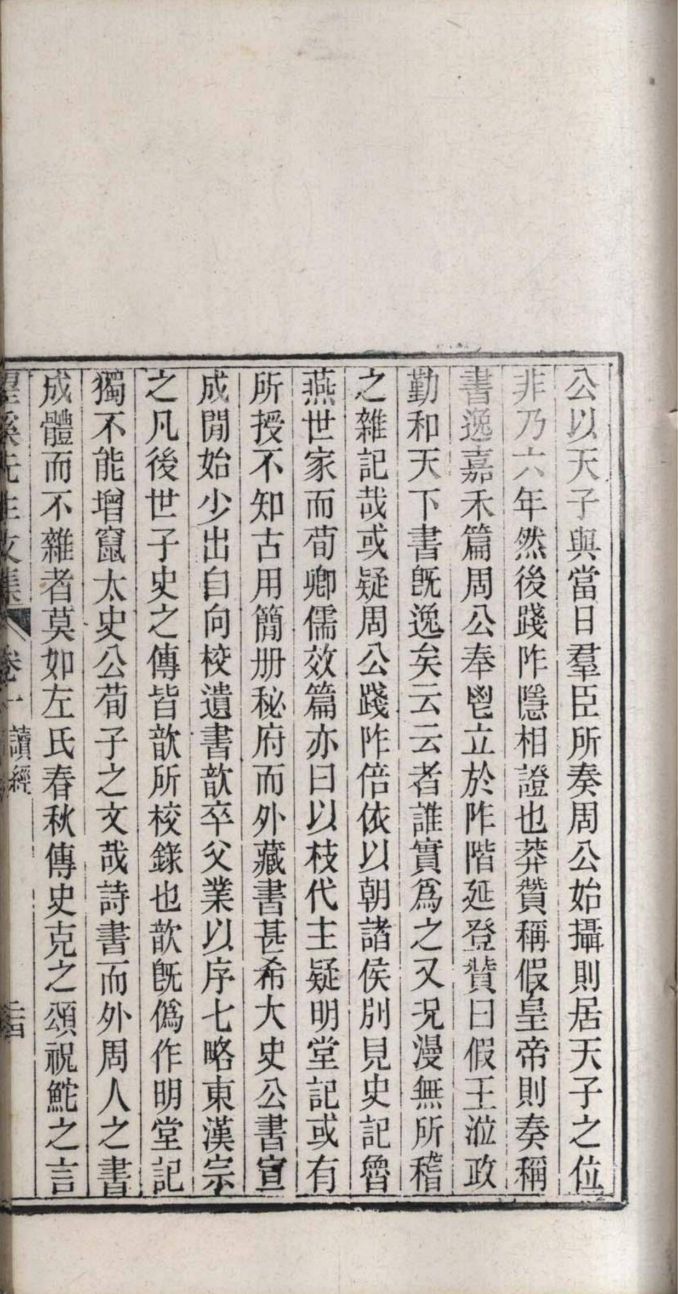 公以天子與當日羣臣所奏周公始攝則居天子之位
非乃六年然後踐阼隱相證也莽贊稱假皇帝則奏稱
書逸嘉禾篇周公奉鬯立於阼階延登贊曰假王涖政
勤和天下書旣逸矣云云者誰實爲之又況漫無所稽
之雜記哉或疑周公踐阼倍依以朝諸侯別見史記魯
燕世家而荀卿儒效篇亦曰以枝代主疑明堂記或有
所授不知古用簡册秘府而外藏書甚希大史公書宣
成閒始少出自向校遺書歆卒父業以序七略東漢宗
之凡後世子史之傳皆歆所校錄也歆旣僞作明堂記
獨不能增竄太史公荀子之文哉詩書而外周人之書
成體而不雜者莫如左氏春秋傳史克之頌祝鮀之言
望溪先生文集 卷一 讀經